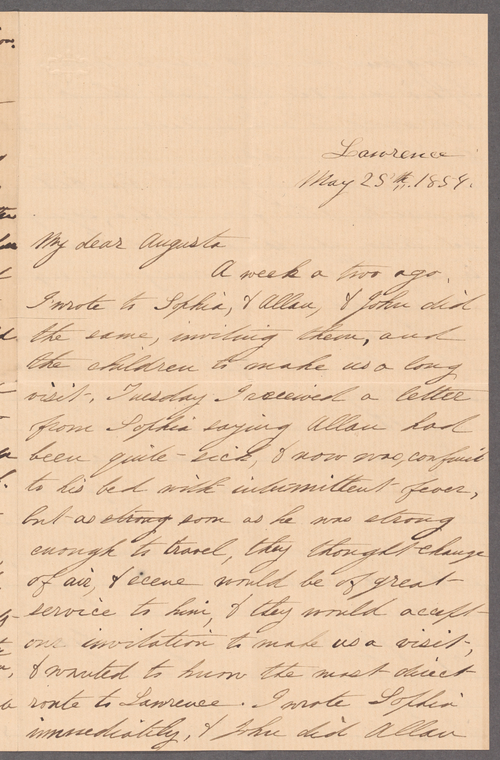 Lawrence
May 25th, 1859.
My dear Augusta
A week a two ago,
I wrote to Sophia, & Allan, & John did
the same, inviting them, and
the children to make us a long
visit. Tuesday I received a letter
from Sophia saying Allan had
been quite sick, & now was, confined
to his bed with intermittent fever,
but as strong soon as he was strong
enough to travel, they thought change
of air, & scene would be of great
service to him, & they would accept
our invitation to make us a visit,
& wanted to know the most direct
route to Lawrence. I wrote Sophia
immediately, & John did Allan